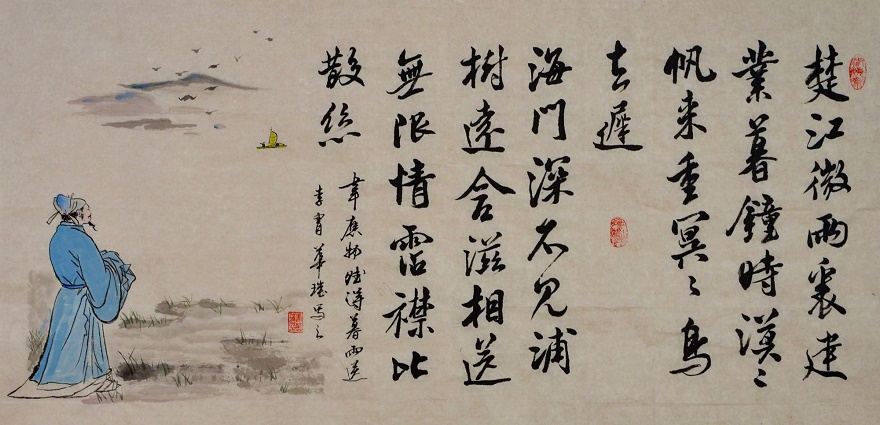 楚江微雨裏建
業暮鐘時漠々
帆来重冥々鳥
去遲
海門深不見浦
樹遠含滋相送
無限情霑襟比
散絲
韋應物賦得暮雨送
李胄 華写之